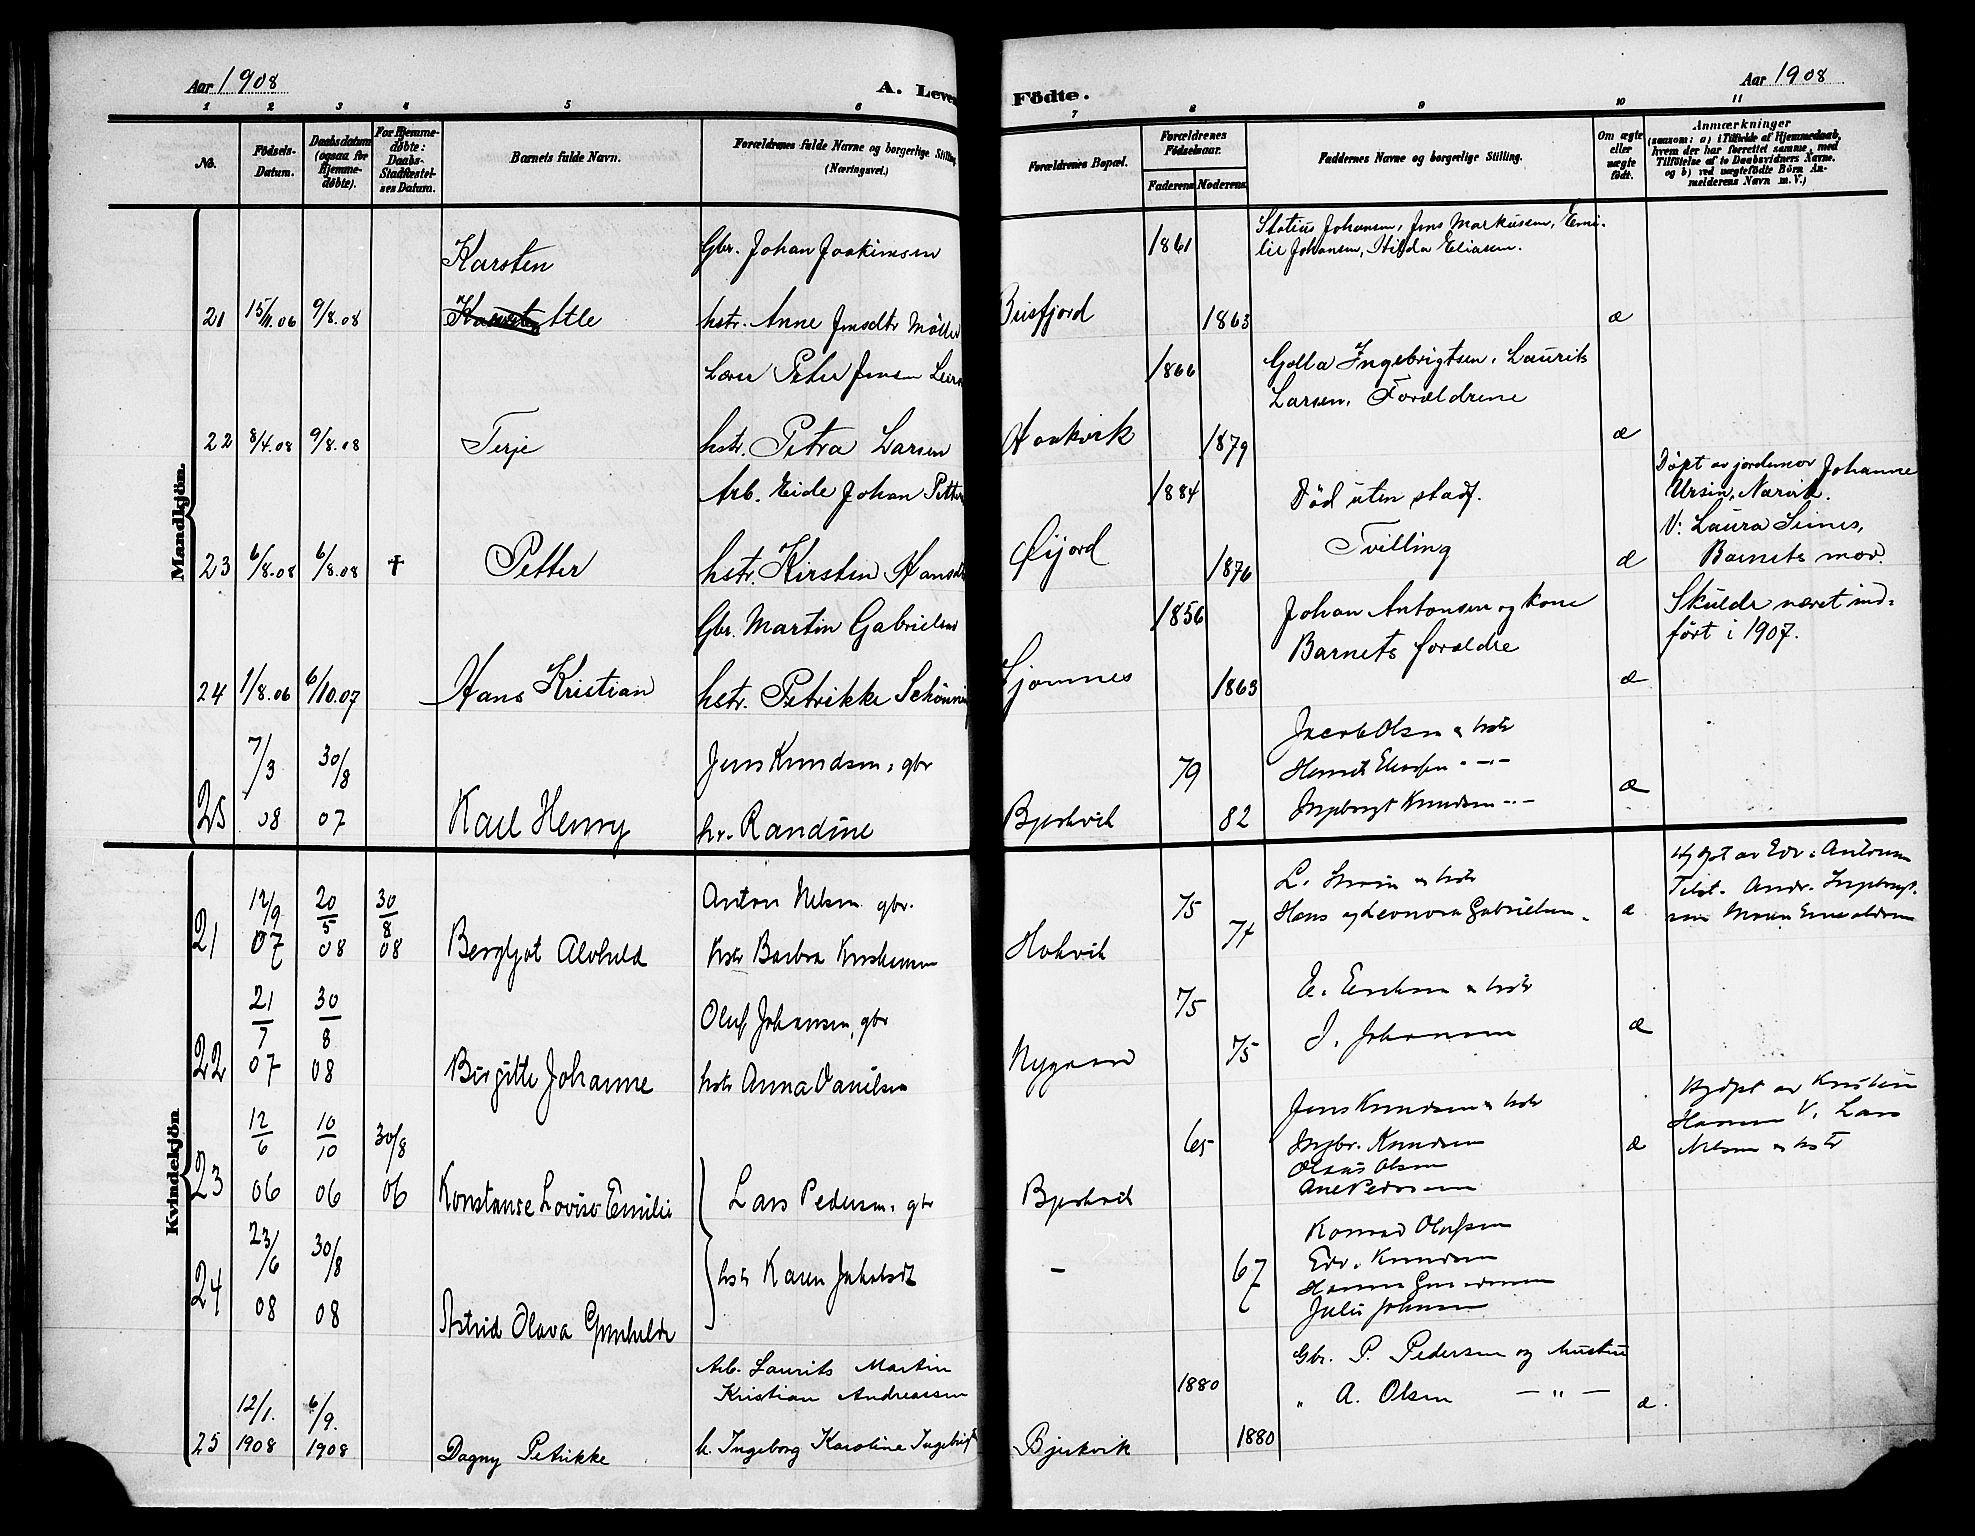 Aar 1908
A. Leven
Födte.
Aar 1908
1 2 3 4 5 6 7 8 9 10 11
No.
Födsels-
Datum.
Daabsdatum
(ogsaa for
Hjemme-
döbte).
For Hjemme-
döbte:
Daabs-
Stadfæstel-
ses Datum.
Barnets fulde Navn.
Forældrenes fulde Navne og borgerlige Stilling
(Næringsvei.)
Forældrenes Bopæl.
Forældrenes
Födselsaar.
Faderens Moderens
Faddernes Navne og borgerlige Stilling.
Om ægte
eller
uægte
födt.
Anmærkninger
(saasom: a) i Tilfælde af Hjemmedaab,
hvem der har forrettet samme, med
Tilföielse af to Daabsvidners Navne.
og b) ved uægtefödte Börn An-
melderens Navn m. V.)
Mandkjön.
Karsten
Gbr. Johan Joakimsen
1861
Statius Johansen, Jens Markusen, Emi-
lie Johansen, Hilda Eliasen.
21 15/11.06 9/8.08 Atle
hstr. Anne Jensdtr Möller
1863 æ
1866
Golla Ingebrigtsen, Laurits
Larsen, Forældrene
22 8/4.08 9/8.08 Terje
hstr. Petra Larsen
1879 æ
Arb. Eide Johan Petter
1884
Död uten stadf.
Döpt av jordemor Johanne
Ursin, Narvik.
V: Laura Simes,
23 6/8.08 6/8.08 † Petter
hstr. Kirsten Hansdt
Öijord
1876
Tvilling
æ
Barnets mor.
Gbr. Martin Gabrielsen
1856
Johan Antonsen og kone
Barnets forældre
Skulde næret ind-
fört i 1907.
24 1/8.06 6/10.07 Hans Kristian
hstr. Petrikke Schönning
1863 æ
7/3 30/8
Jens Knudsen, gbr
79
Jacob Olsen & hstr
25 08 07 Karl Henry
hr. Randine
Bjerkvik
82
Ingeborgt Knudsen -"-
æ
Kvindekjön
12/9 20/5 30/8
Anton Nelsen gbr.
75
Hans og Leonora Gabrielsen.
æ
21 07 08 08 Bergljot Alvhild
hstr Barbra
74
21/7 30/8
Oluf Johansen, gbr
75
J. Johansen
æ
22 07 08 Birgitte Johanne
hstr Anna Danilsen
75
12/6 10/10 30/8
65
Jens Knudsen & hstr
Ingbr. Knudsen
Olaus Olsen
Ane Pedersen
æ
V. Lars
Nelsen & hstr
23 06 06 06 Konstanse Lovise Emilie
Lars Pedersen, gbr
Bjerkvik
23/6 30/8
hstr Karen Jakobsdt
-
67
Konrad Olufsen
Edv. Knudsen
Julie Johnsen
24 08 08
Astrid Olava Gunhilde
Arb. Laurits Martin
Kristian Andreassen
1880
Gbr. P. Pedersen og hustru
" A. Olsen — " —
æ.
12/1. 6/9.
25 1908 1908 Dagny Petrikke
h. Ingeborg Karoline Ingebrigt
Bjerkvik
1880